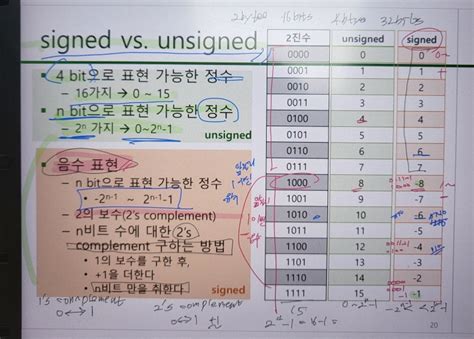 2bytes 16bits 4bytes 32bits
signed vs. unsigned
• 4 bit으로 표현 가능한 정수
– 16가지 → 0 ~ 15
• n bit으로 표현 가능한 정수
– 2ⁿ 가지 → 0~2ⁿ-1
unsigned
• 음수 표현
– n bit으로 표현 가능한 정수
• -2ⁿ⁻¹ ~ 2ⁿ⁻¹-1
– 2의 보수(2's complement)
– n비트 수에 대한 2's
complement 구하는 방법
• 1의 보수를 구한 후,
• +1을 더한다
• n비트 만을 취한다!
signed
2진수 unsigned signed
0000 0 0
0001 1 1
0010 2 2
0011 3 3
0100 4 4
0101 5 5
0110 6 6
0111 7 7
1000 8 -8
1001 9 -7
1010 10 -6
1011 11 -5
1100 12 -4
1101 13 -3
1110 14 -2
1111 15 -1
1's complement
0↔1
2's complement
0↔1 +1
15
2⁴-1 = 16-1 =
0~2ⁿ-1
20